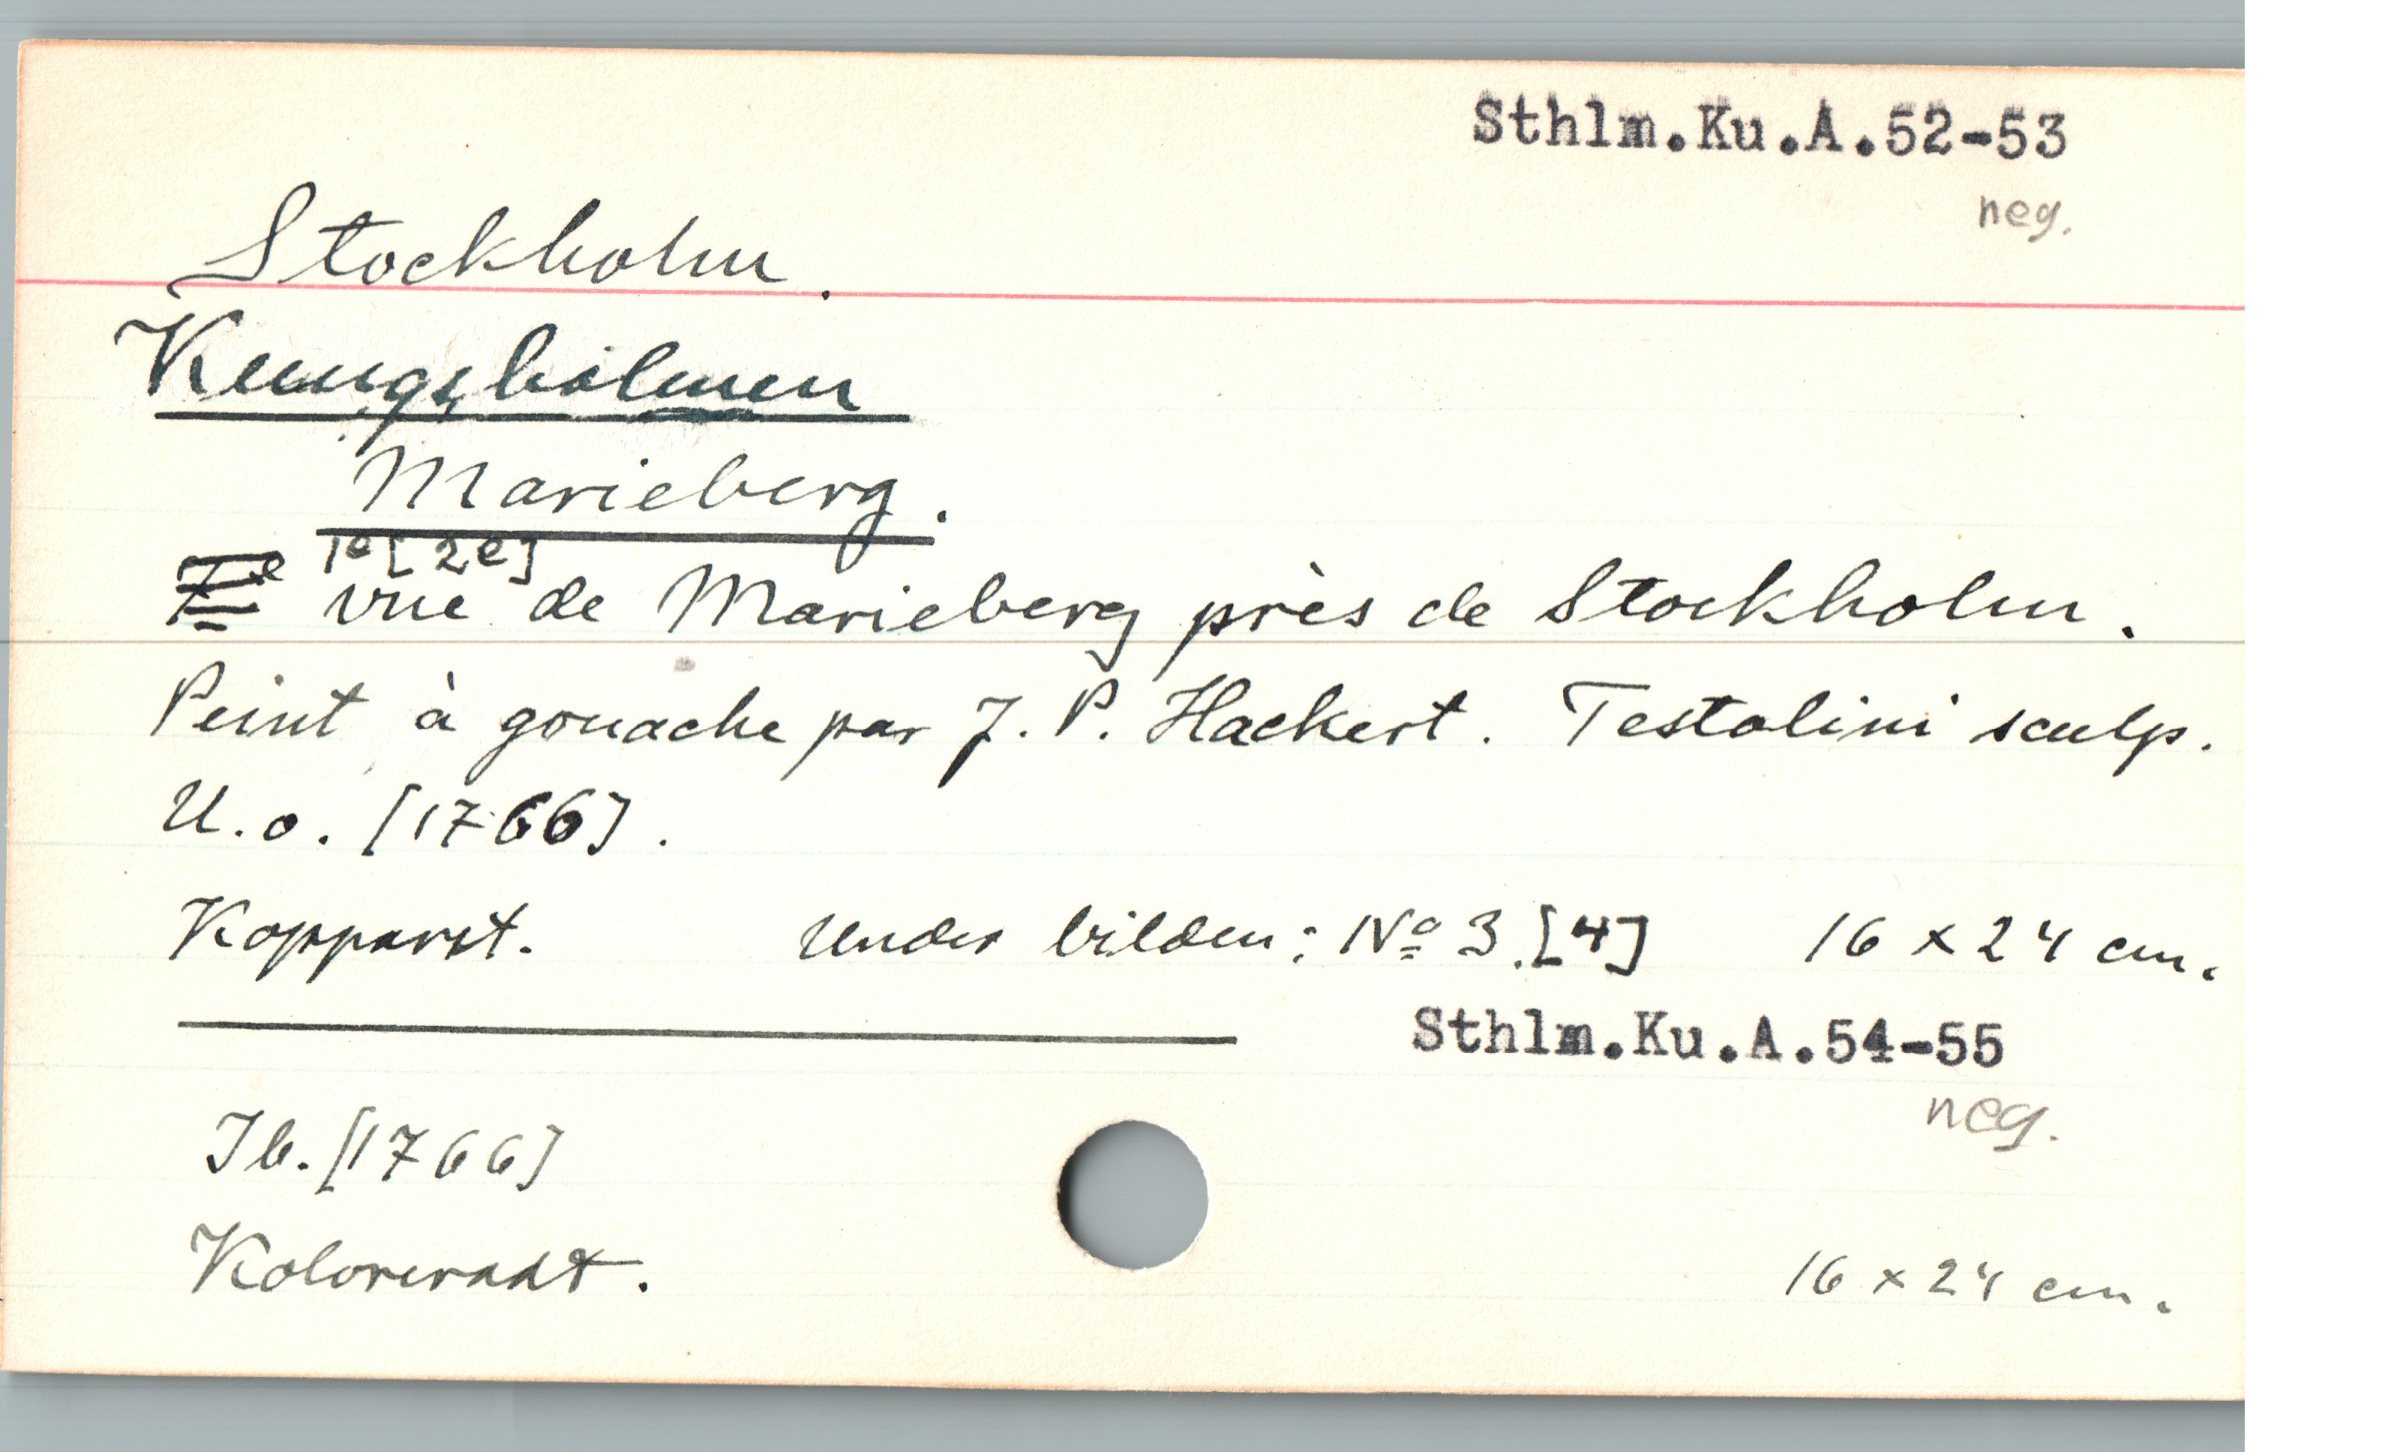 Sthlm.Ku.A.52-53
neg.
Stockholm.
Kungsholmen
Marieberg.
1e[2e]
vue de Marieberg près de Stockholm.
Peint à gouache par J. P. Hackert. Testolini sculp.
U.o. [1766].
Kopparst. Under bilden: No 3.[4] 16 x 24 cm.
Sthlm.Ku.A.54-55
neg.
Ib. [1766]
Koloreradt. 16 x 24 cm.